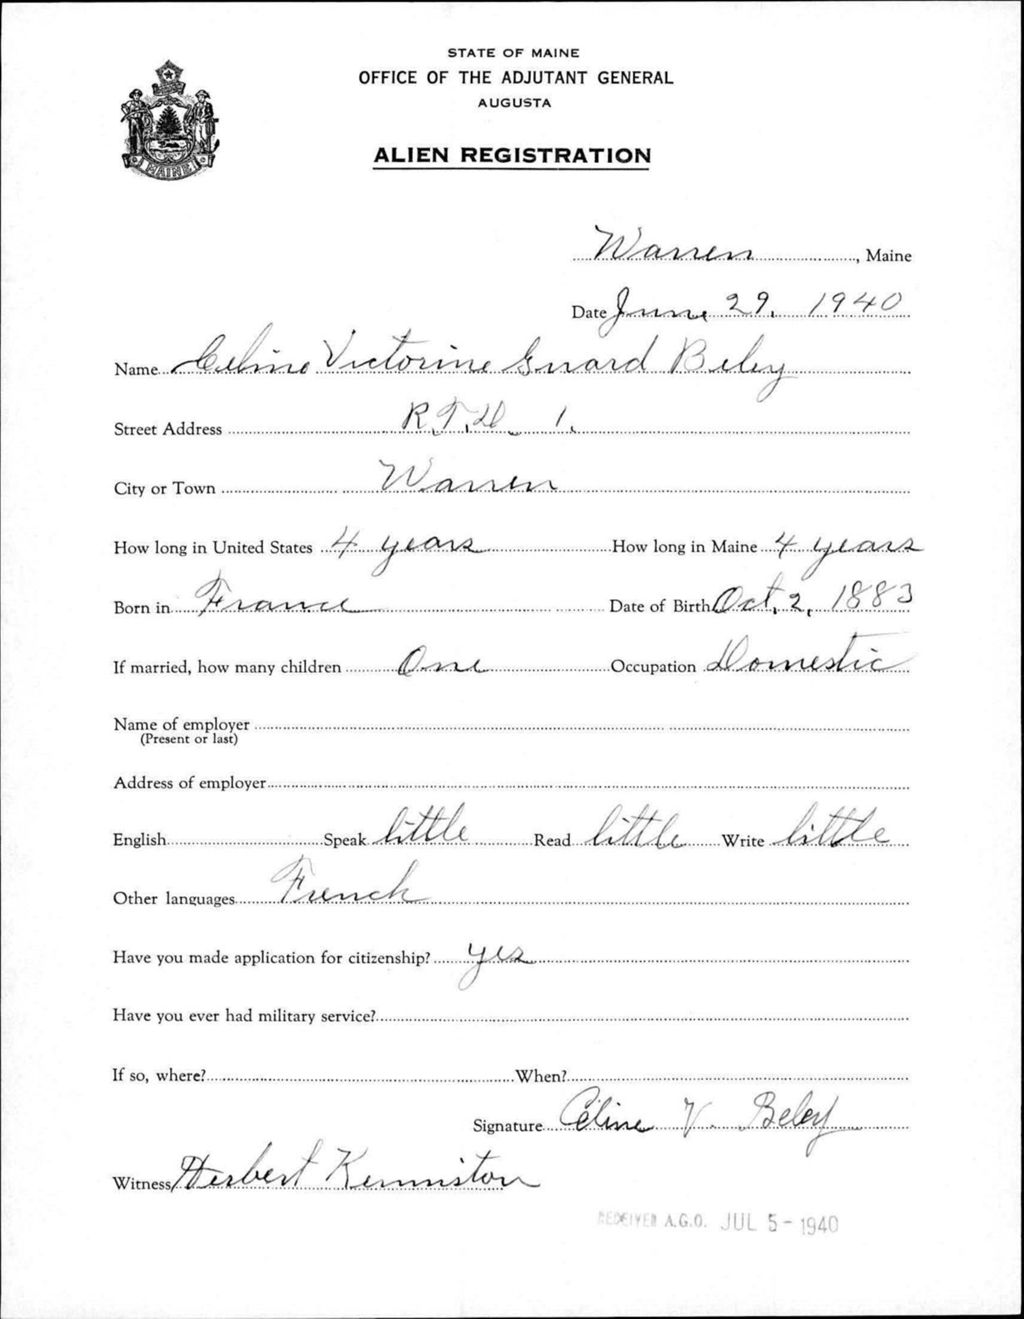 STATE OF MAINE
OFFICE OF THE ADJUTANT GENERAL
AUGUSTA
ALIEN REGISTRATION
MAINE
Warren, Maine
Date June 29, 1940
Name Celine Victorine Guard Beley
Street Address R.F.D. 1.
City or Town Warren
How long in United States 4 years How long in Maine 4 years
Born in France Date of Birth Oct, 2, 1883
If married, how many children One Occupation Domestic
Name of employer
(Present or last)
Address of employer
English Speak little Read little Write little
Other languages French
Have you made application for citizenship? yes
Have you ever had military service?
If so, where? When?
Signature Céline V. Beley
Witness Herbert Kenniston
RECEIVED A.G.O. JUL 5 - 1940